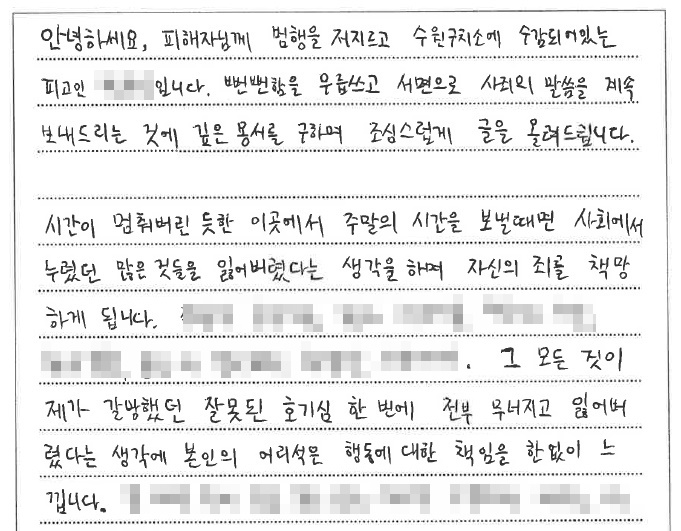 안녕하세요, 피해자님께 범행을 저지르고 수원구치소에 수감되어있는
피고인 입니다. 뻔뻔함을 무릅쓰고 서면으로 사죄의 말씀을 계속
보내드리는 것에 깊은 용서를 구하며 조심스럽게 글을 올려드립니다.
시간이 멈춰버린 듯한 이곳에서 주말의 시간을 보낼때면 사회에서
누렸던 많은것들을 잃어버렸다는 생각을 하며 자신의 죄를 책망
하게 됩니다.
. 그 모든 것이
제가 갈망했던 잘못된 호기심 한 번에 전부 무너지고 잃어버
렸다는 생각에 본인의 어리석은 행동에 대한 책임을 한없이 느
낍니다.